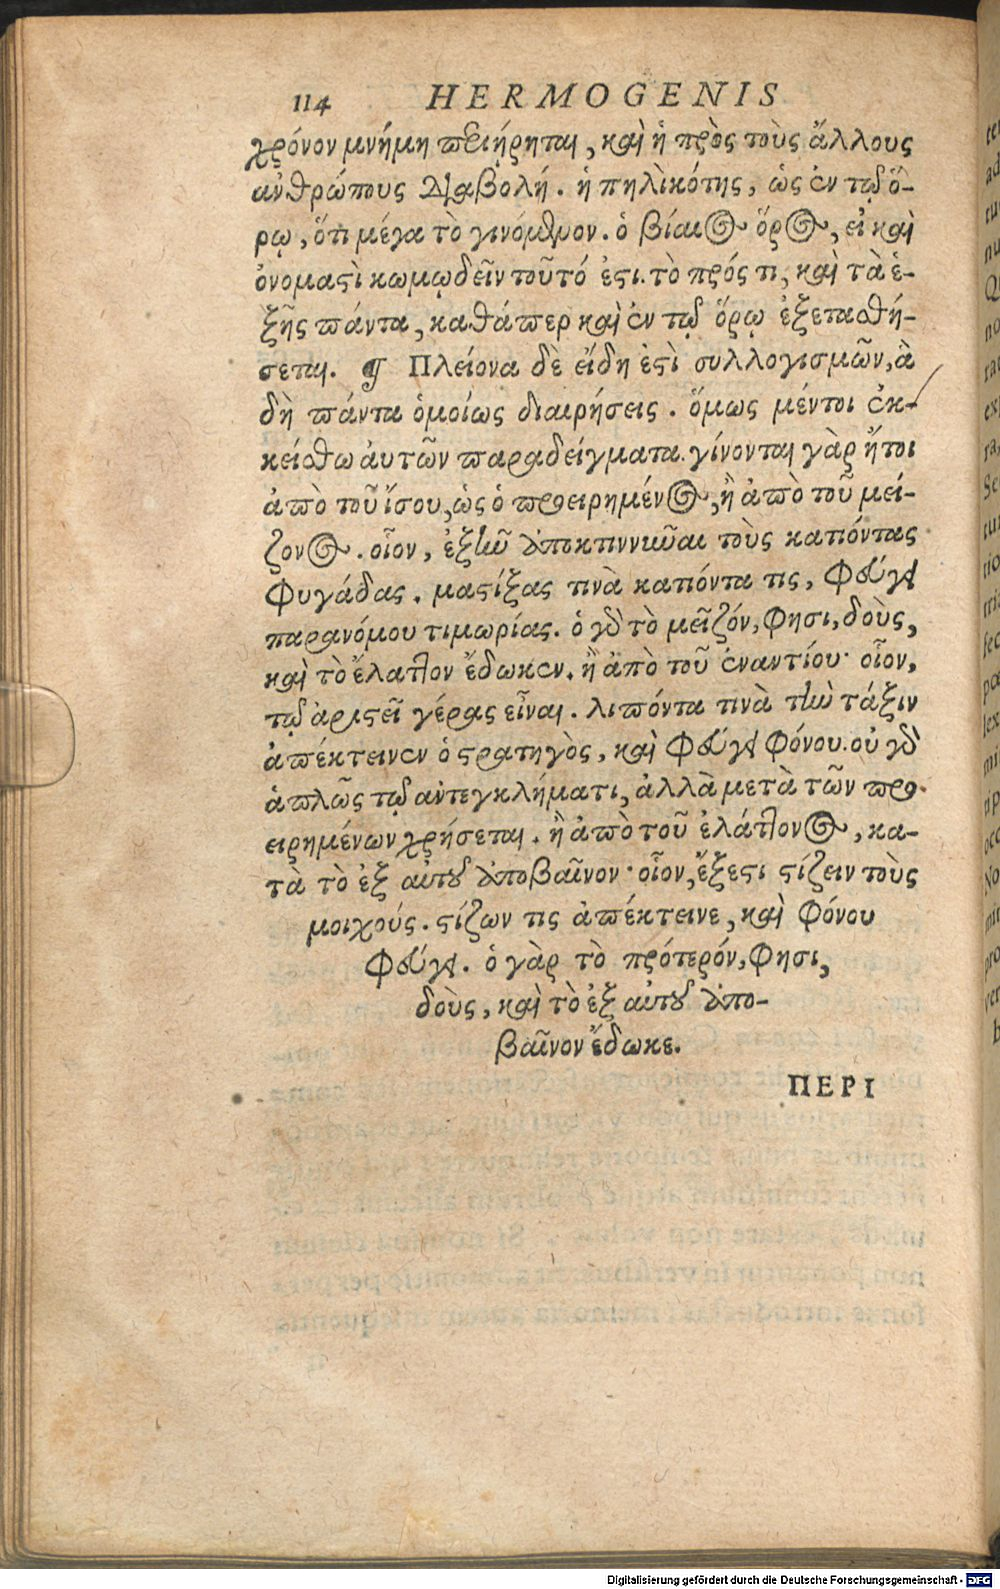 114 HERMOGENIS
χρόνον μνήμη περιήρηται, καὶ ἡ πρὸς τοὺς ἄλλους
ἀνθρώπους διαβολή. ἡ πηλικότης, ὡς ἐν τῷ ὅ-
ρῳ, ὅτι μέγα τὸ γινόμενον. ὁ βίαιος ὅρος, εἰ καὶ
ὀνομαστὶ κωμῳδεῖν τοῦτό ἐστι. τὸ πρός τι, καὶ τὰ ἑ-
ξῆς πάντα, καθάπερ καὶ ἐν τῷ ὅρῳ ἐξετασθή-
σεται. ¶ Πλείονα δὲ εἴδη ἐστὶ συλλογισμῶν, ἃ
δὴ πάντα ὁμοίως διαιρήσεις. ὅμως μέντοι ἐκ-
κείσθω αὐτῶν παραδείγματα. γίνονται γὰρ ἤτοι
ἀπὸ τοῦ ἴσου, ὡς ὁ προειρημένος, ἢ ἀπὸ τοῦ μεί-
ζονος. οἷον, ἐξὴν ἀποκτιννύναι τοὺς κατιόντας
φυγάδας. μαστίξας τινὰ κατιόντα τις, φεύγει
παρανόμου τιμωρίας. ὁ γὰρ τὸ μεῖζόν, φησι, δοὺς,
καὶ τὸ ἔλαττον ἔδωκεν. ἢ ἀπὸ τοῦ ἐναντίου· οἷον,
τῷ ἀριστεῖ γέρας εἶναι. λιπόντα τινὰ τὴν τάξιν
ἀπέκτεινεν ὁ στρατηγὸς, καὶ φεύγει φόνου. οὐ γὰρ
ἁπλῶς τῷ ἀντεγκλήματι, ἀλλὰ μετὰ τῶν προ-
ειρημένων χρήσεται. ἢ ἀπὸ τοῦ ἐλάττονος, κα-
τὰ τὸ ἐξ αὐτοῦ ἀποβαῖνον· οἷον, ἔξεστι στίζειν τοὺς
μοιχούς. στίζων τις ἀπέκτεινε, καὶ φόνου
φεύγει. ὁ γὰρ τὸ πρότερόν, φησι,
δοὺς, καὶ τὸ ἐξ αὐτοῦ ἀπο-
βαῖνον ἔδωκε.
ΠΕΡΙ
Digitalisierung gefördert durch die Deutsche Forschungsgemeinschaft - DFG